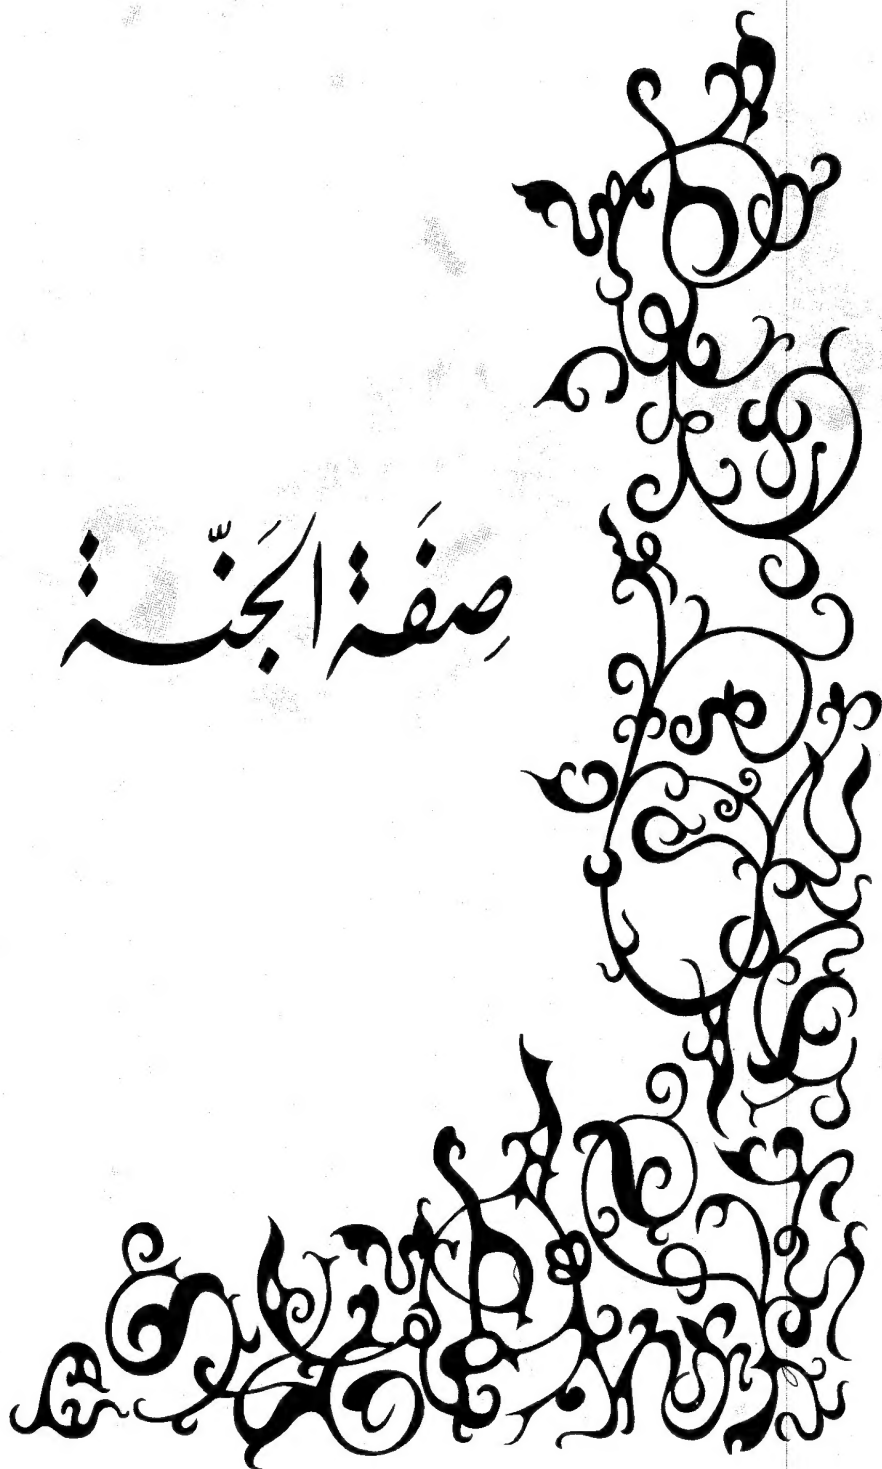 صِفَة الجَنّة